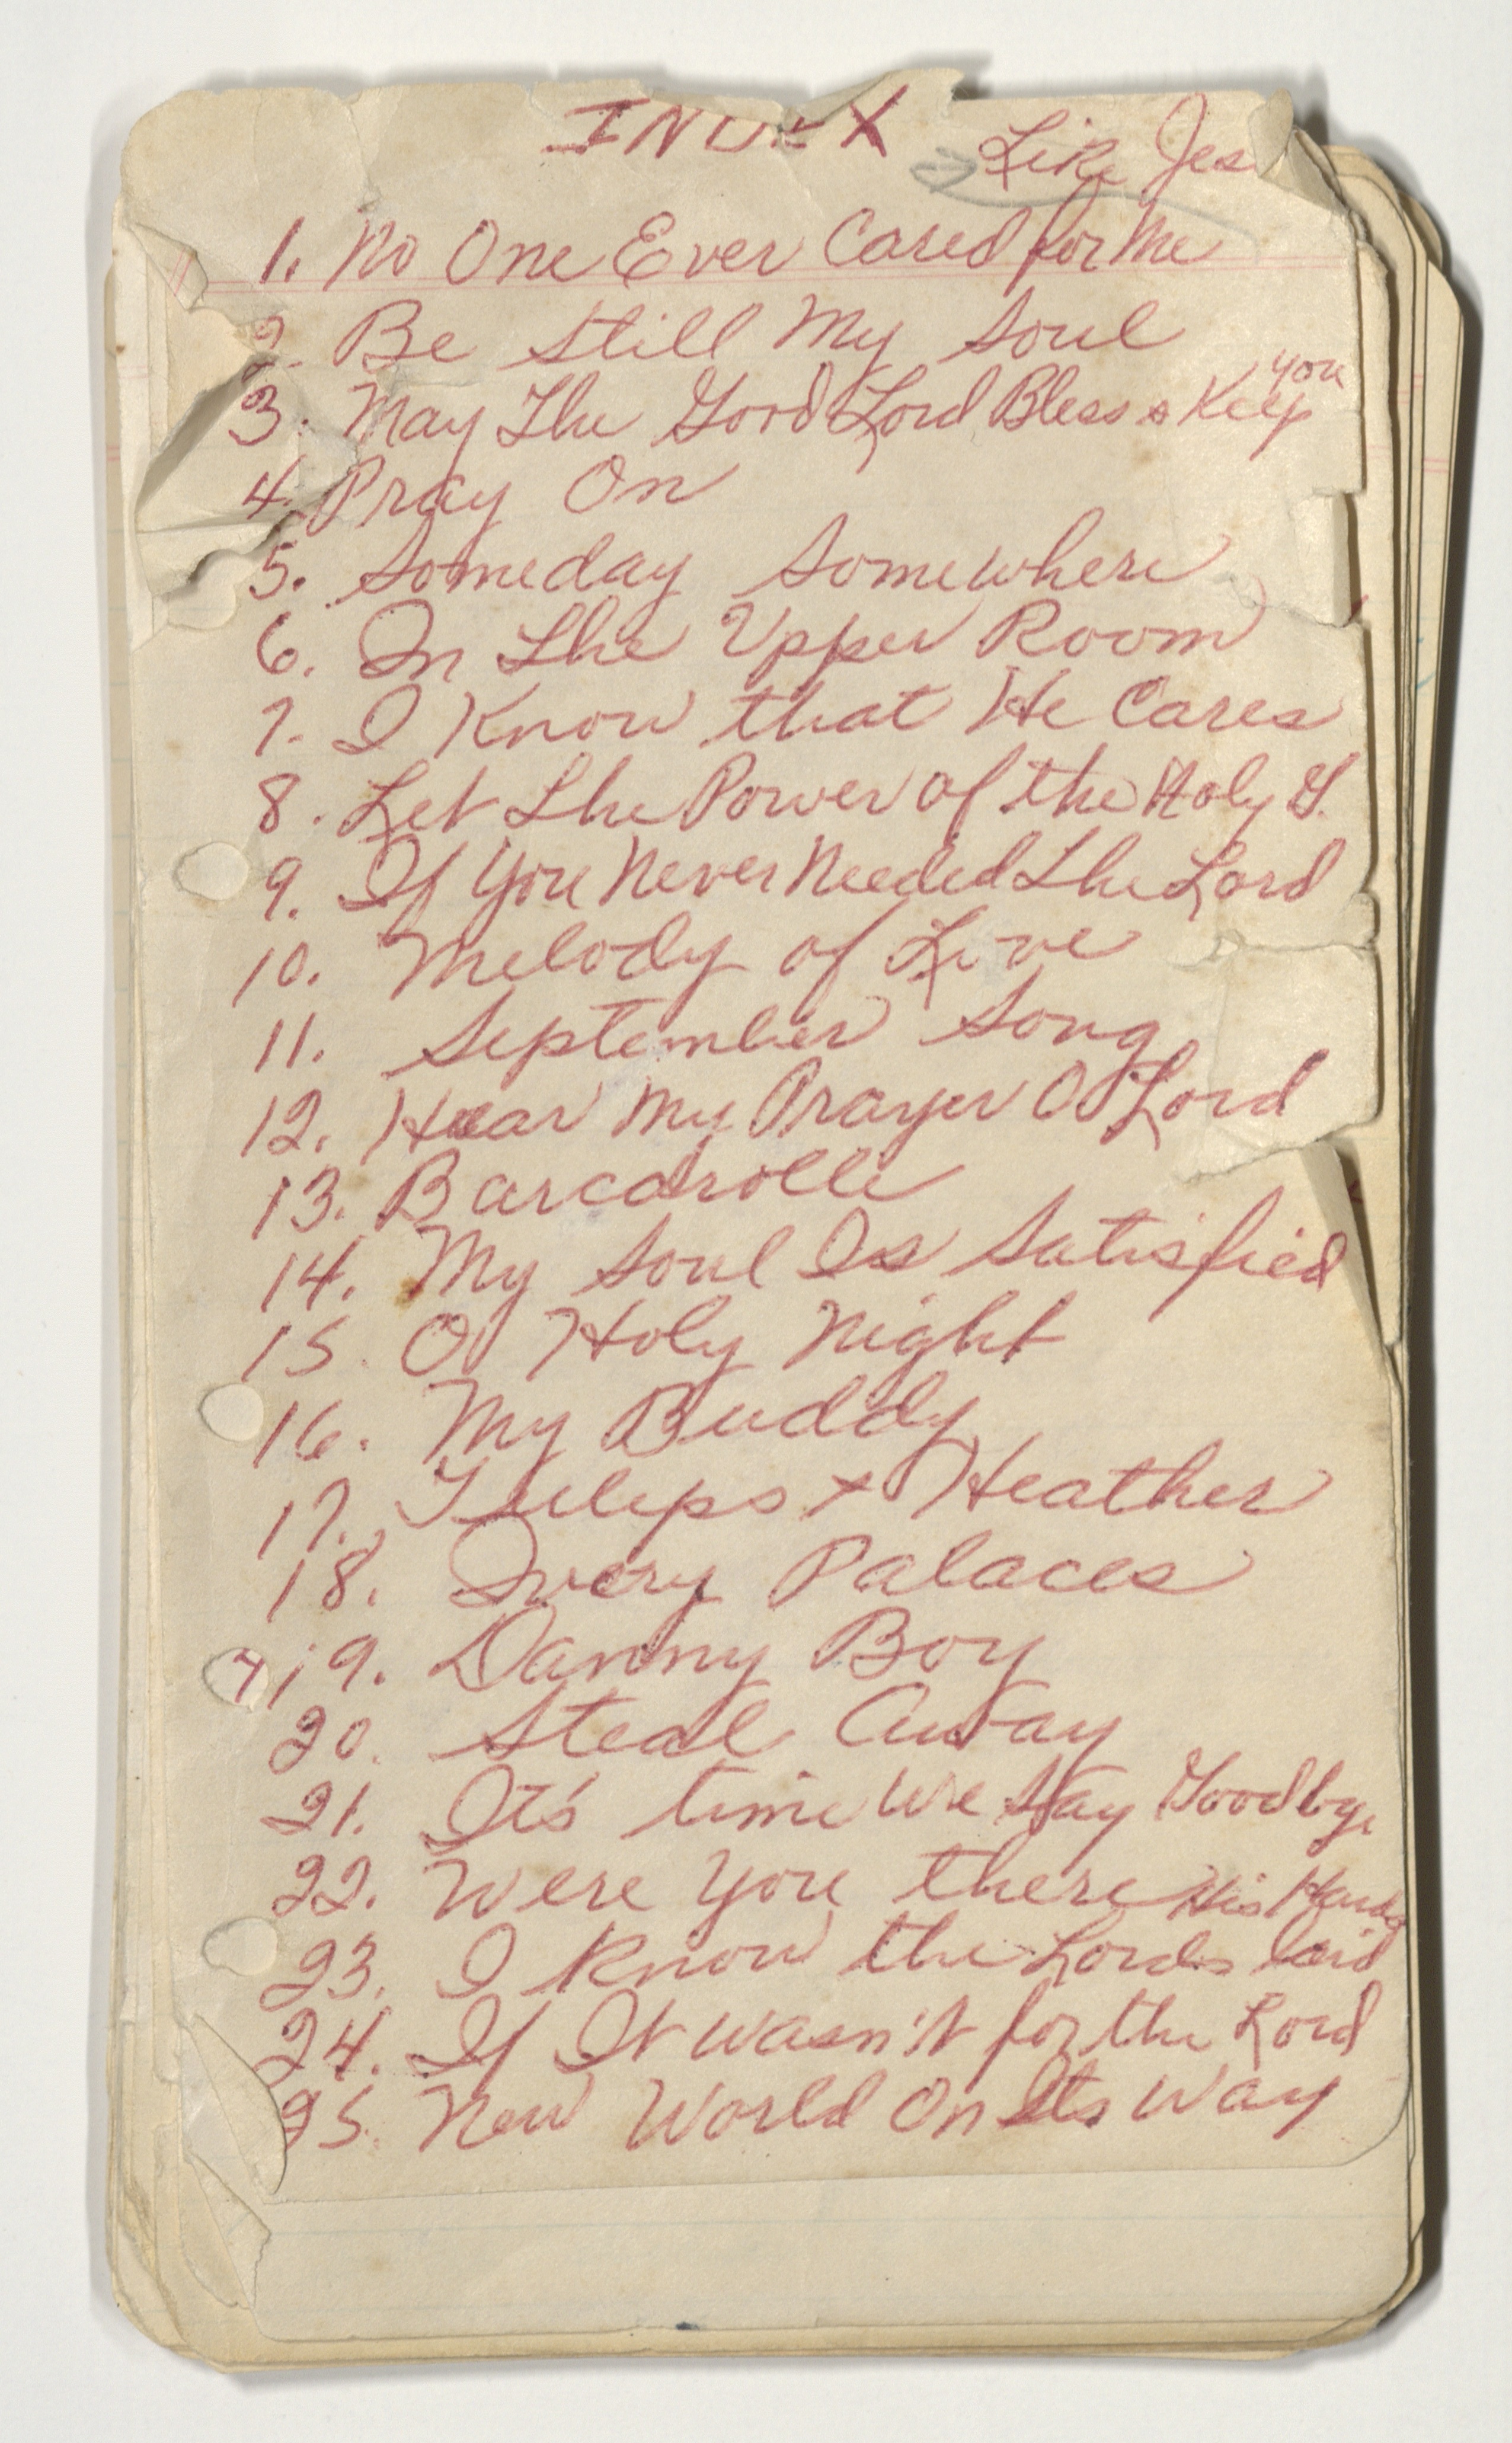 INDEX
Like Jes
1. No One Ever Cared for Me
2. Be Still My Soul
you
3. May The Good Lord Bless & Keep
4. Pray On
5. Someday Somewhere
6. In The Upper Room
7. I Know that He Cares
8. Let The Power of the Holy G.
9. If You Never Needed The Lord
10. Melody of Love
11. September Song
12. Hear My Prayer O Lord
13. Barcarolle
14. My Soul Is Satisfied
15. O Holy Night
16. My Buddy
17. Tulips + Heather
18. Ivory Palaces
19. Danny Boy
20. Steal Away
21. It's time We Say Goodbye
22. Were You there
His Hands
23. I Know the Lords laid
24. If It wasn't for the Lord
25. New World On Its Way